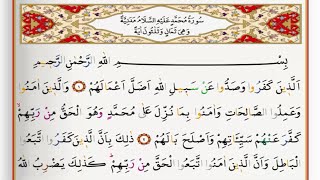 سُورَةُ مُحَمَّدٍ عَلَيْهِ السَّلَامُ مَدَنِيَّةٌ
وَهِيَ ثَمَانٍ وَثَلٰثُونَ اٰيَةً
بِسْمِ اللّٰهِ الرَّحْمٰنِ الرَّحِيمِ
اَلَّذِينَ كَفَرُوا وَصَدُّوا عَنْ سَبِيلِ اللّٰهِ اَضَلَّ اَعْمَالَهُمْ ۝ وَالَّذِينَ اٰمَنُوا
وَعَمِلُوا الصَّالِحَاتِ وَاٰمَنُوا بِمَا نُزِّلَ عَلٰى مُحَمَّدٍ وَهُوَ الْحَقُّ مِنْ رَبِّهِمْۙ
كَفَّرَ عَنْهُمْ سَيِّـَٔاتِهِمْ وَاَصْلَحَ بَالَهُمْ ۝ ذٰلِكَ بِاَنَّ الَّذِينَ كَفَرُوا اتَّبَعُوا
الْبَاطِلَ وَاَنَّ الَّذِينَ اٰمَنُوا اتَّبَعُوا الْحَقَّ مِنْ رَبِّهِمْۜ كَذٰلِكَ يَضْرِبُ اللّٰهُ